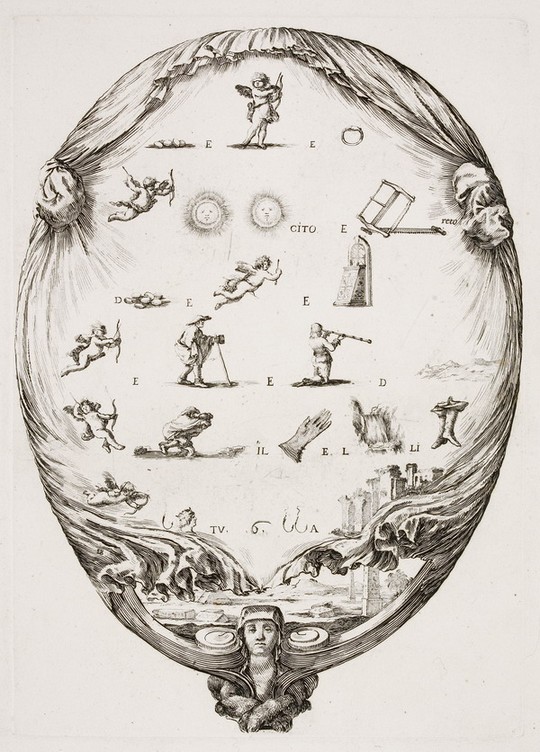 E E
CITO E reto
D E E
E E D
ÎL E L LI
TV. 6. A